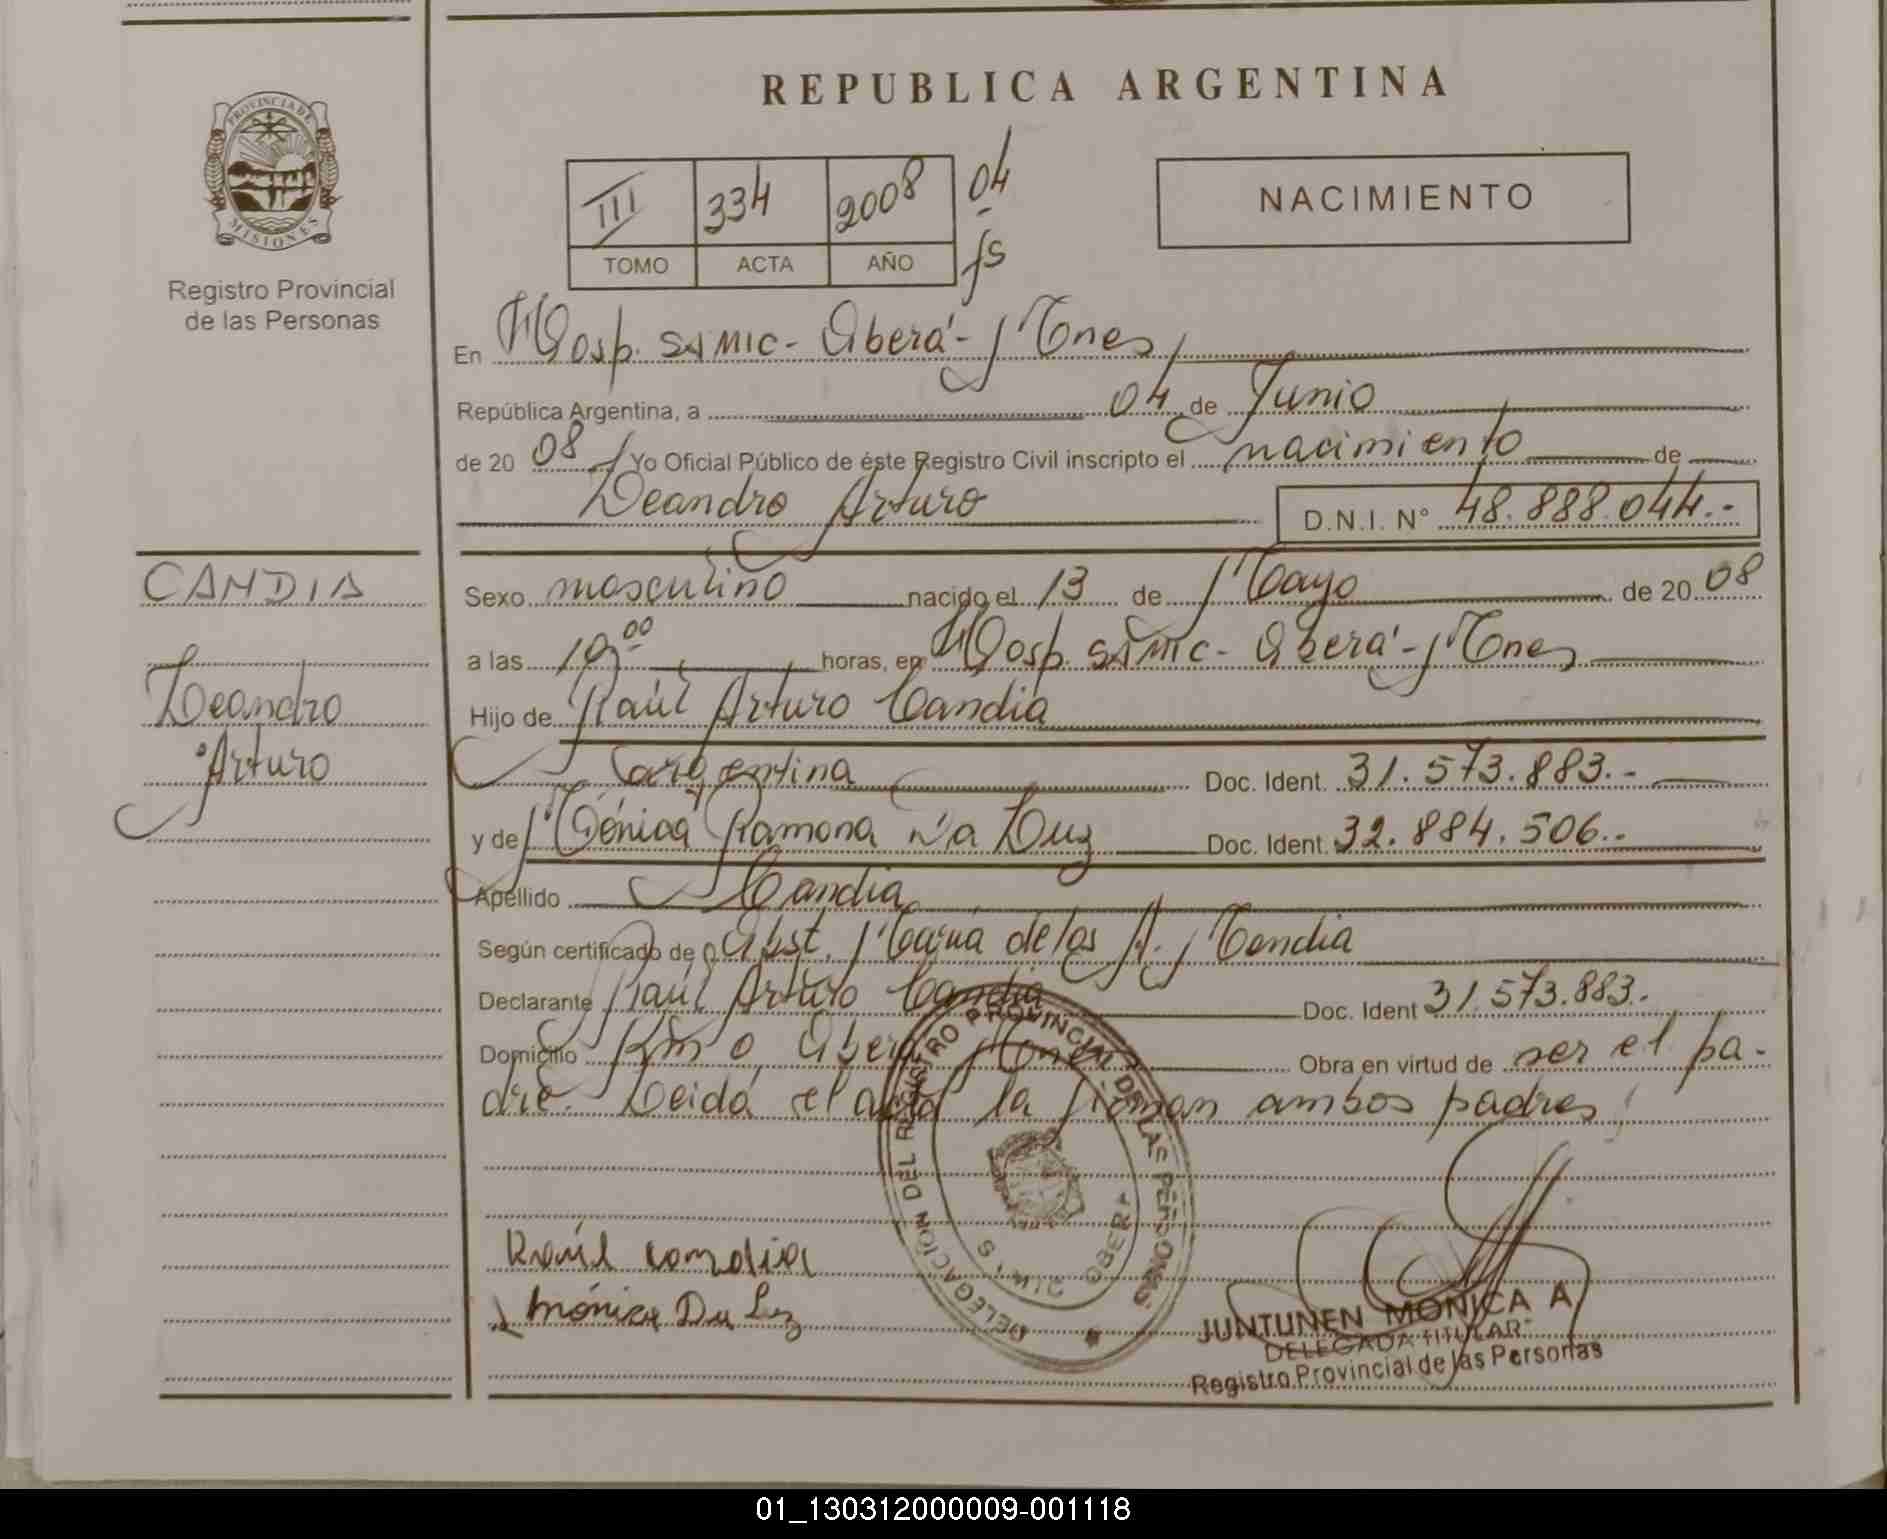 REPUBLICA ARGENTINA
PROVINCIA DE MISIONES
Registro Provincial
de las Personas
III 334 2008 04
TOMO ACTA AÑO fs
NACIMIENTO
En Hosp. SAMIC - Oberá - Mnes
República Argentina, a 04 de Junio
de 2008 Yo Oficial Público de éste Registro Civil inscripto el nacimiento de
Leandro Arturo D.N.I. N° 48.888.044.-
CANDIA
Leandro
Arturo
Sexo masculino nacido el 13 de Mayo de 2008
a las 19,00 horas, en Hosp. SAMIC - Oberá - Mnes
Hijo de Raúl Arturo Candia
argentina Doc. Ident. 31.573.883.-
y de Mónica Ramona Da Luz Doc. Ident. 32.884.506.-
Apellido Candia
Según certificado de Obst. María de los A. Mendia
Declarante Raúl Arturo Candia Doc. Ident 31.573.883.-
Domicilio Km 0 Oberá Mnes Obra en virtud de ser el pa-
dre. Leida el acta la firman ambos padres
Raúl Candia
Mónica Da Luz
DELEGACION DEL REGISTRO PROVINCIAL DE LAS PERSONAS
OBERA
JUNTUNEN MONICA A.
DELEGADA TITULAR
Registro Provincial de las Personas
01_130312000009-001118